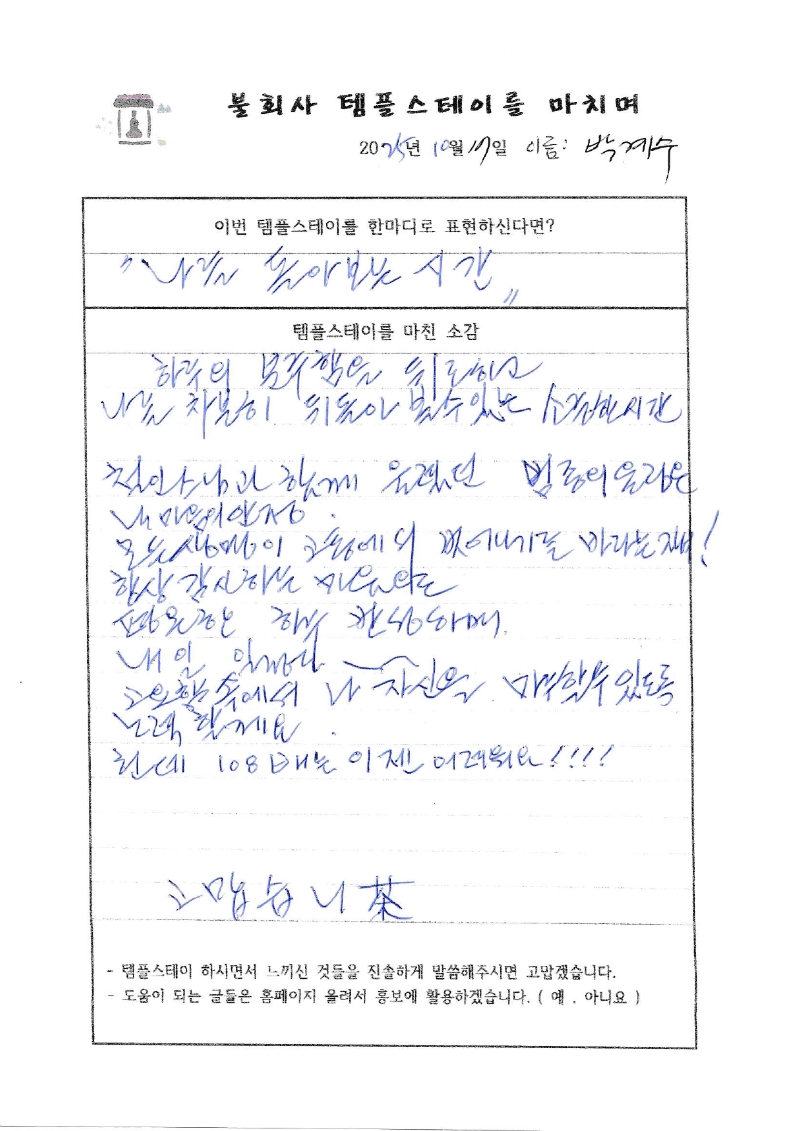 불회사 템플스테이를 마치며
2025년 10월 17일 이름: 박계수
이번 템플스테이를 한마디로 표현하신다면?
"나를 돌아보는 시간"
템플스테이를 마친 소감
하루의 모두함을 뒤로하고
나를 차분히 뒤돌아 볼수있는 소중한시간
스님과 함께 울렸던 범종의울림은
내마음의안정.
모든생명이 고통에서 벗어나기를 바라는
항상 감사하는 마음으로
하루 반성하며.
내일
고요함속에서 나 자신을 마주할수있도록
노력할게요.
헌데 108배는 이젠 어려워요!!!!
고맙습니茶
- 템플스테이 하시면서 느끼신 것들을 진솔하게 말씀해주시면 고맙겠습니다.
- 도움이 되는 글들은 홈페이지 올려서 홍보에 활용하겠습니다. ( 예 . 아니요 )